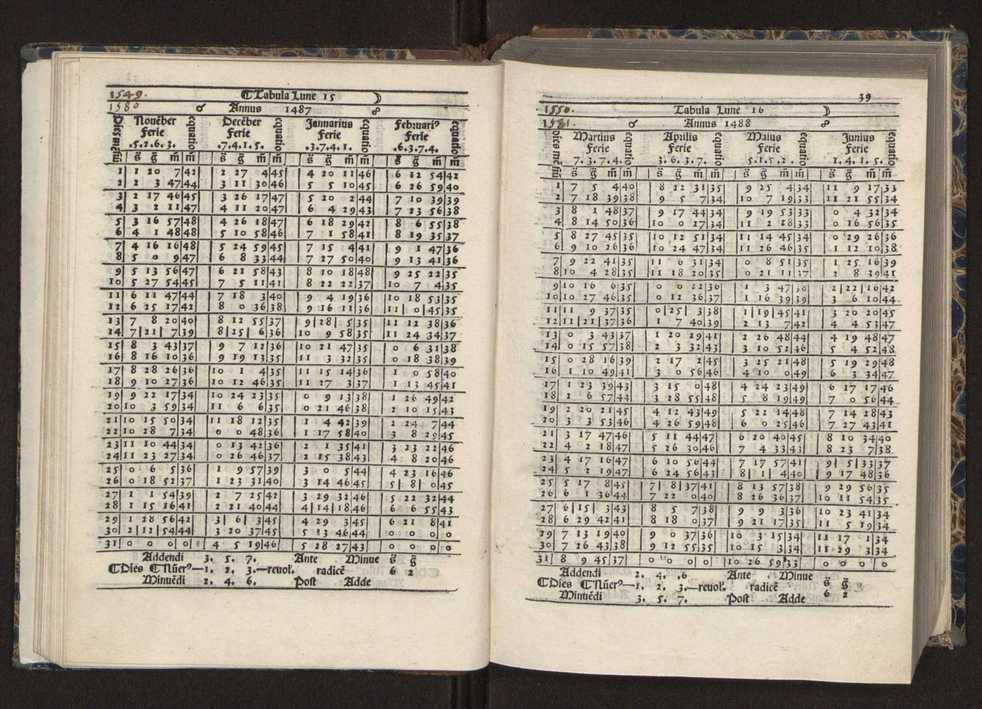 1549. ⸿Tabula Lune 15 ☽
1580 ♂ Annus 1487 ☍
Nouẽber Decẽber Jannarius Februariꝰ
ferie ferie ferie ferie
.5.2.6.3. .7.4.1.5. .3.7.4.1. .6.3.7.4.
s̃ g̃ m̃ m̃ s̃ g̃ m̃ m̃ s̃ g̃ m̃ m̃ s̃ g̃ m̃ m̃
1 1 20 7 42 2 27 4 45 4 20 11 46 6 12 54 42
2 2 3 47 44 3 11 30 46 5 5 10 45 6 26 59 40
3 2 17 46 45 3 26 17 47 5 20 2 44 7 10 39 39
4 3 2 11 47 4 11 20 47 6 4 29 43 7 23 56 38
5 3 16 57 48 4 26 18 47 6 18 29 42 8 6 55 38
6 4 1 48 48 5 10 58 46 7 1 58 41 8 19 35 37
7 4 16 16 48 5 24 59 45 7 15 4 41 9 1 47 36
8 5 0 9 47 6 8 33 44 7 27 50 40 9 13 41 36
9 5 13 56 47 6 21 58 43 8 10 18 48 9 25 22 35
10 5 27 54 45 7 5 11 41 8 22 22 37 10 7 4 35
11 6 11 47 44 7 18 3 40 9 4 19 36 10 18 53 35
12 6 25 17 42 8 0 36 38 9 16 11 36 11 0 45 35
13 7 8 20 40 8 12 55 37 9 28 5 35 12 12 38 36
14 7 21 7 39 8 25 6 36 10 9 58 35 11 24 34 37
15 8 3 43 37 9 7 12 36 10 21 47 35 0 6 31 38
16 8 16 10 36 9 19 13 35 11 3 32 35 0 18 38 39
17 8 28 26 36 10 1 4 35 11 15 14 36 1 0 58 40
18 9 10 27 36 10 12 46 35 11 27 3 37 1 13 45 41
19 9 22 17 34 10 24 23 35 0 9 13 38 1 26 49 42
20 10 3 59 34 11 6 6 35 0 21 46 38 2 10 15 43
21 10 15 50 34 11 18 12 35 1 4 42 39 1 24 7 44
22 10 28 7 34 0 0 48 36 1 17 58 40 3 8 29 45
23 11 10 44 34 0 13 42 36 2 1 35 41 3 23 22 46
24 11 23 27 34 0 26 46 37 2 15 38 43 4 8 20 46
25 0 6 5 36 1 9 57 39 3 0 5 44 4 23 16 46
26 0 18 52 37 1 23 31 40 3 14 46 45 5 8 0 45
27 1 1 54 39 2 7 25 42 3 29 32 46 5 22 32 44
28 1 15 16 41 2 21 40 44 4 14 18 46 6 6 55 43
29 1 28 56 42 3 6 3 45 4 29 3 45 6 21 8 41
30 2 12 54 44 3 20 37 45 5 13 46 44 0 0 0 0
31 0 0 0 0 4 5 19 46 5 28 27 43 0 0 0 0
Addendi 3. 5. 7. Ante Minue s̃ g̃
⸿Dies ⸿Nũerꝰ—1. 2. 3.—reuol. radicẽ 6 2
Minuẽdi 2. 4. 6. Post Adde
39
1550. Tabula Lune 16 ☽
1581. ♂ Annus 1488 ☍
Martius Aprilis Maius Junius
ferie ferie ferie ferie
7.3.7.4. 3.6.3.7. 5.1.5.2. 1.4.1.5.
s̃ g̃ m̃ m̃ s̃ g̃ m̃ m̃ s̃ g̃ m̃ m̃ s̃ g̃ m̃ m̃
1 7 5 4 40 8 22 31 35 9 25 4 34 11 9 17 33
2 7 18 39 38 9 5 7 34 10 7 19 33 11 21 55 34
3 8 1 48 37 9 17 44 34 9 19 53 33 0 4 32 34
4 8 14 50 36 10 0 27 34 11 2 18 33 0 16 56 35
5 8 27 45 35 10 12 51 34 11 14 45 34 0 29 26 36
6 9 10 26 36 10 24 47 34 11 26 46 35 1 12 10 38
7 9 22 41 35 11 6 31 34 0 8 51 35 1 25 16 39
8 10 4 28 35 11 18 20 35 0 21 11 37 2 8 39 41
9 10 16 6 35 0 0 22 36 1 3 47 30 2 22 16 42
10 10 27 46 35 0 12 36 37 1 16 39 39 3 6 10 44
11 11 9 37 35 0 25 3 38 1 19 45 41 3 20 20 45
12 11 21 37 36 1 7 40 39 2 13 7 42 4 4 53 47
13 0 3 43 37 1 20 29 41 2 26 48 44 4 19 48 47
14 0 15 57 38 2 3 32 43 3 10 51 46 5 4 52 48
15 0 28 16 39 2 17 2 45 3 25 21 48 5 19 29 48
16 1 10 49 41 3 0 56 46 4 10 0 49 6 3 34 47
17 1 23 39 43 3 15 0 48 4 24 23 49 6 17 17 46
18 2 6 57 44 3 28 55 48 5 8 19 49 7 0 56 44
19 2 20 21 45 4 12 43 49 5 22 14 48 7 14 28 43
20 3 3 53 46 4 26 59 48 6 0 25 46 7 27 43 41
21 3 17 47 46 5 11 44 47 6 20 40 45 8 10 34 40
22 4 2 18 47 5 26 30 46 7 4 33 43 8 23 7 38
23 4 17 16 47 6 10 56 44 7 17 57 41 9 5 33 37
24 5 2 19 47 6 24 56 43 8 1 4 40 9 17 48 36
25 5 17 8 45 7 8 37 41 8 13 57 38 9 29 56 35
26 6 1 36 44 7 22 0 40 8 26 36 37 10 11 54 35
27 6 15 3 43 8 5 7 38 9 9 3 36 10 23 41 34
28 6 29 42 41 8 18 0 37 9 21 17 35 11 5 19 34
29 7 13 19 40 9 0 37 36 10 3 15 34 11 17 1 34
30 7 26 43 38 9 12 55 35 10 15 3 34 11 29 3 34
31 8 9 45 37 0 0 0 0 10 26 59 33 0 0 0 0
Addendi 2. 4. 6 Ante Minue s̃ g̃
⸿Dies ⸿Nũerꝰ—1. 2. 3.—reuol. radicẽ 6 2
Minuẽdi 3. 5. 7. Post Adde